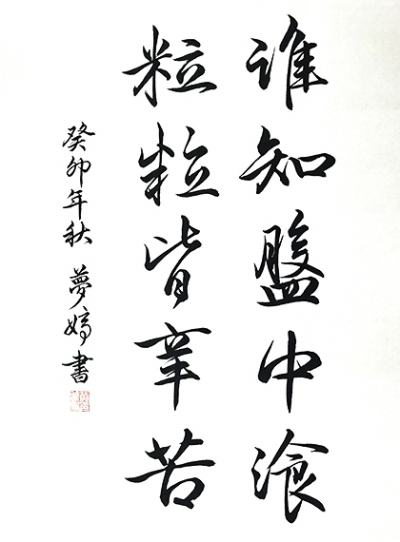 谁知盤中湌
粒粒皆辛苦
癸卯年秋 夢婷書